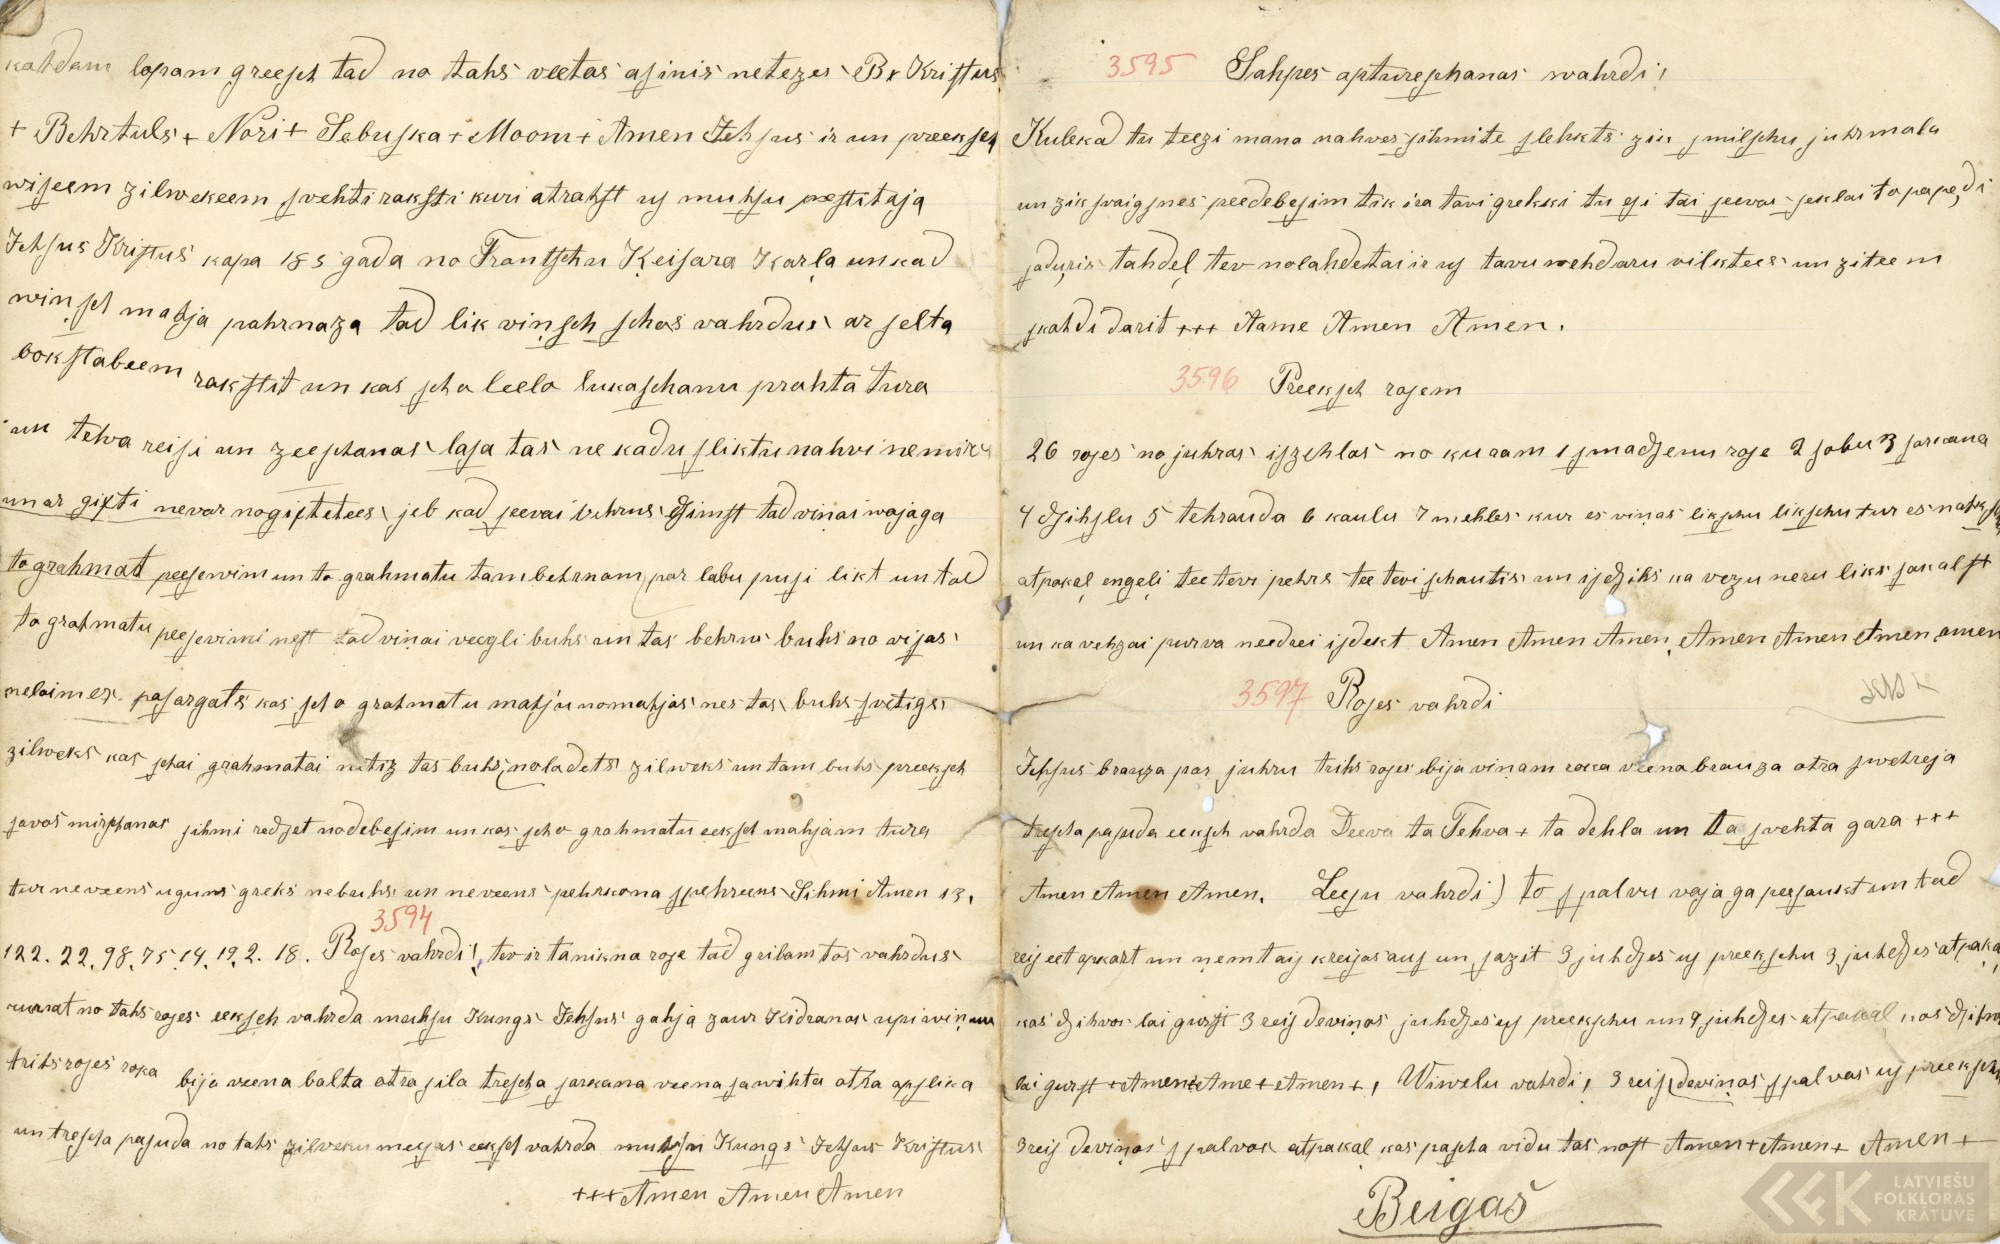 kahdam lopam greesch tad no tahs veetas asinis netezes B x Kristus
+ Behrtuls + Nori + Sebuska + Moom + Amen Jehsus ir un preeksch
wiseem zilwekeem svehti raksti kuri atrahst us muhsu pestitaja
Jehsus Kristus kapa 185 gada no Frantschu Keisara Karļa un kad
wiņsch mahja pahrnaza tad lik viņsch schos vahrdus ar selta
bokstabeem rakstit un kas scho leelo lukaschanu prahta tura
un tehva reisi un zeeschanas lasa tas ne kadu sliktu nahvi nemirs
un ar gifti nevar nogiftetees jeb kad seevai behrns dsimst tad viņai wajaga
to grahmat peesewim un to grahmatu tam behrnam par labu pusi likt un tad
to grahmatu peesevimi nest tad viņai veegli buhs un tas behrns buhs no visas
nelaimes pasargats kas scho grahmatu mahju no mahjas nes tas buhs svetigs
zilweks kas schai grahmatai netiz tas buhs noladets zilweks un tam buhs preeksch
savas mirschanas sihmi redset no debesim un kas scho grahmatu eeksch mahjam tura
tur ne veens uguns greks nebuhs un neveens pehrkona spehreens Sihmi Amen 13.
122. 22. 98. 75. 14. 19. 2. 18. 3594 Roses vahrdi! tev ir ta nikna rose tad gribam tos vahrdus
runat no tahs roses eeksch vahrda muhsu Kungs Jehsus gahja zaur Kidranas upi wiņam
trihs roses roka bija veena balta otra sila trescha sarkana veena sawihta otra apslika
un trescha pasuda no tahs zilveku meesas eeksch vahrda muhsu Kungs Jehsus Kristus
+++ Amen Amen Amen
3595 Sahpes aptureschanas wahrdi!
Kulekad tu teezi mana nahves sihmite slehkts zik smilschu juhrmala
un zik svaigsnes pee debesim tik ira tavi grehki tu esi tai seevas seklai to papedi
saduris tahdeļ tev nolahdetai ir us tavu wehdaru vilktees un ziteem
skahdi darit +++ Aame Amen Amen.
3596 Preeksch rosem
26 roses no juhras iszehlas no kuram 1 smadsenu rose 2 sobu 3 sarkana
4 dsihslu 5 tehrauda 6 kaulu 7 mehles kur es viņas likschu likschu tur es nahkschu
atpakaļ engeļi tee tevi pehrs tee tevi schautis un isdsihs ka vezu neru liks sakalst
un ka vehzai purva needrei isdekt Amen Amen Amen, Amen Amen Amen amen
3597 Roses vahrdi
Jehsus brauza par juhru trihs roses bija viņam roka veena brauza otra swehreja
trescha pasuda eeksch vahrda Deeva ta Tehva + ta dehla un ta svehta gara +++
Amen Amen Amen. Leeju vahrdi) to spalvu vajaga persaukt un tad
reis eet apkart un ņemt ais kreisas aus un sazit 3 juhdses us preekschu 3 juhdses atpakaļ
kas dsihvos lai gurst 3 reis deviņas juhdses us preekschu un 9 juhdses atpakal kas dsihvos
lai gurst + Amen + Ame + Amen +, Wiwelu vahrdi, 3 reis deviņas spalvas us preekschu
3 reis deviņas spalvas atpakaļ kas pascha vidu tas nost Amen + Amen + Amen +
Beigas
LATVIEŠU
FOLKLORAS
KRĀTUVE